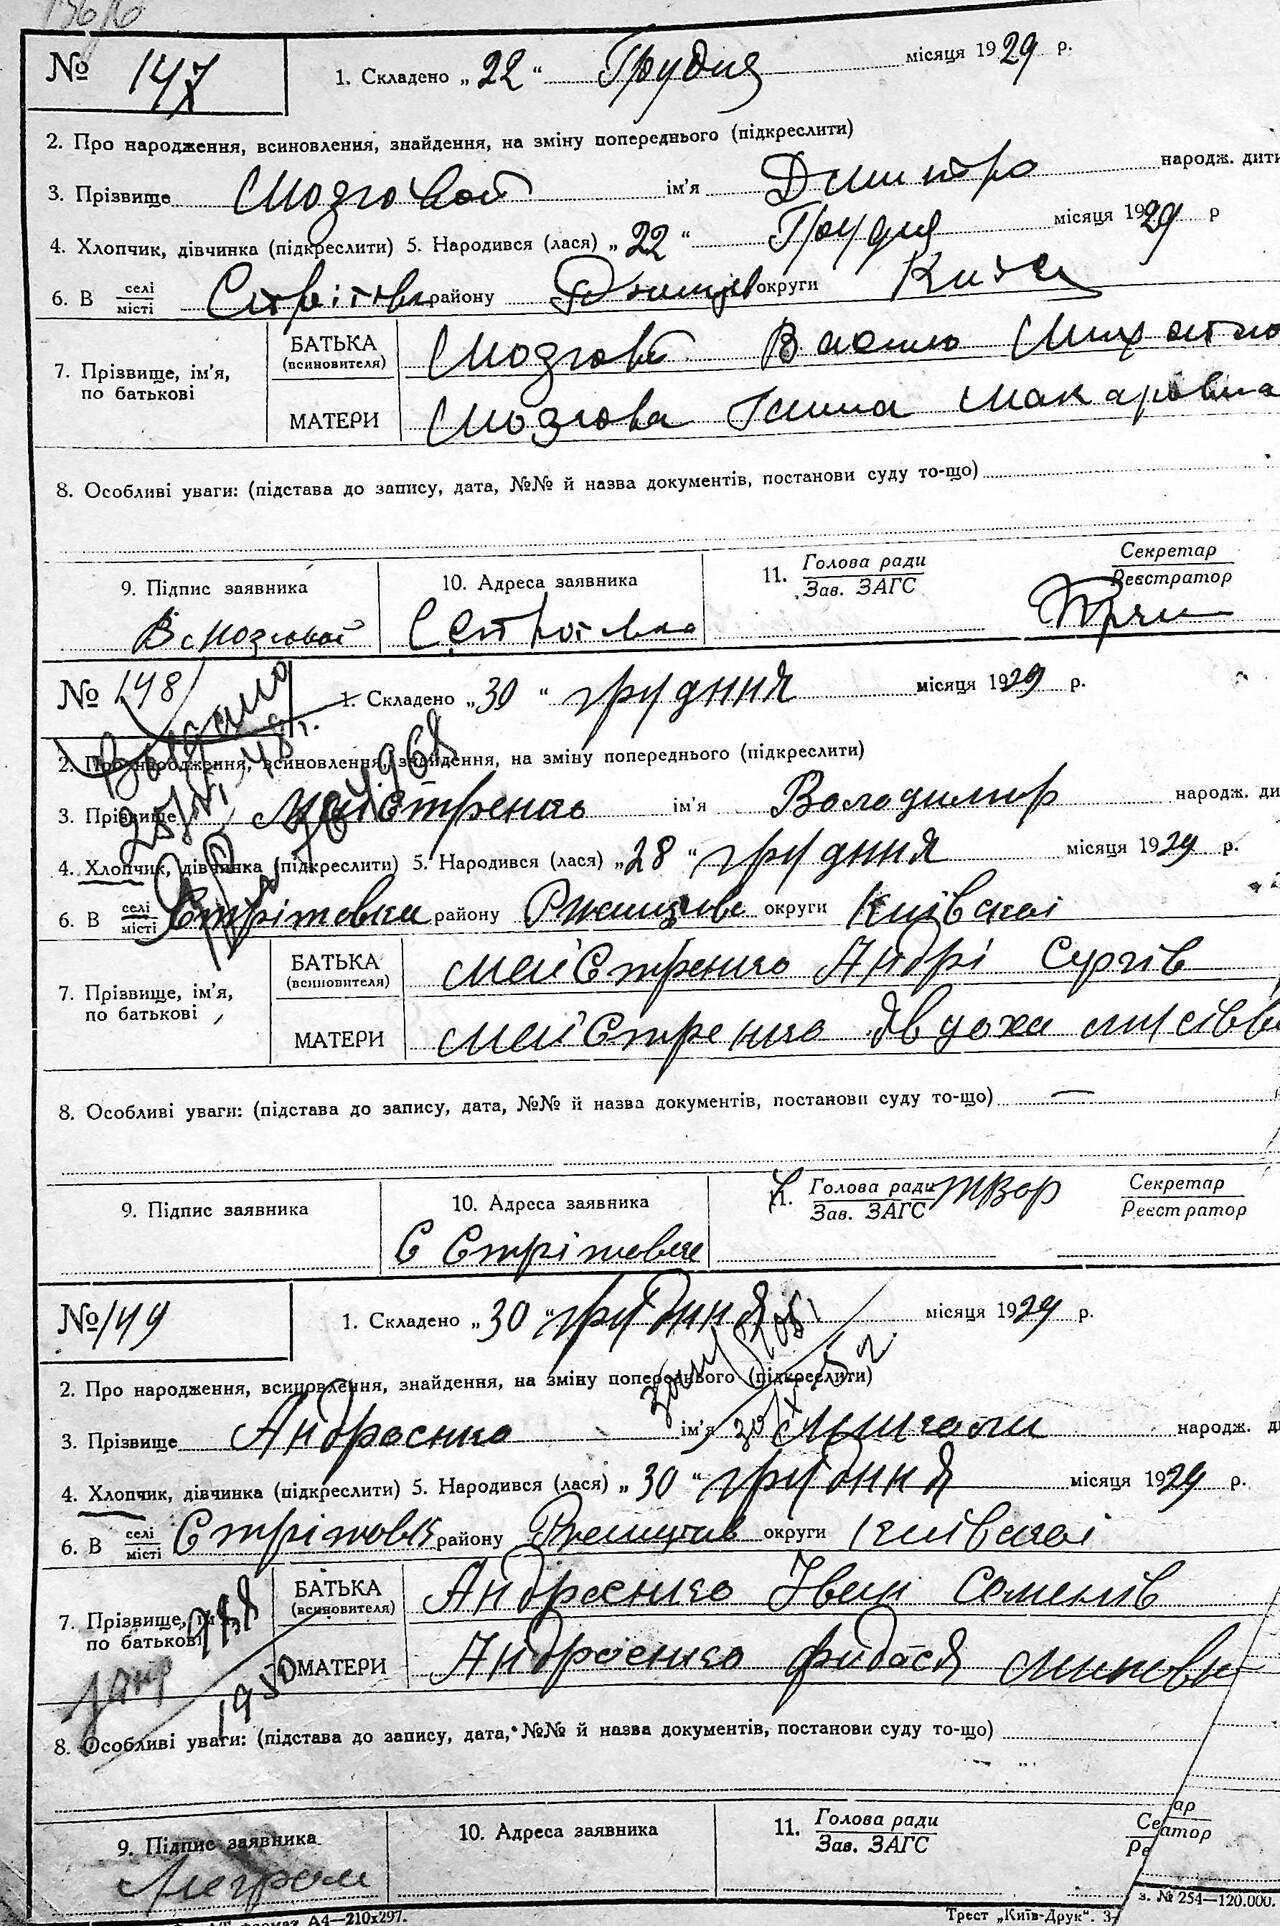 № 147
1. Складено „22“ Грудня місяця 1929 р.
2. Про народження, всиновлення, знайдення, на зміну попереднього (підкреслити)
3. Прізвище Мозговой ім'я Дмитро народж. дити
4. Хлопчик, дівчинка (підкреслити) 5. Народився (лася) „22“ Грудня місяця 1929 р
6. В селі місті Стрітовка району округи
7. Прізвище, ім'я, по батькові
БАТЬКА (всиновителя) Мозговой Василь Михайло
МАТЕРИ Мозгова Ганна Макаровна
8. Особливі уваги: (підстава до запису, дата, №№ й назва документів, постанови суду то-що)
9. Підпис заявника 10. Адреса заявника 11. Голова ради Зав. ЗАГС Секретар Реєстратор
В Мозговой С Стрітовка
№ 148
1. Складено „30“ грудння місяця 1929 р.
2. Про народження, всиновлення, знайдення, на зміну попереднього (підкреслити)
3. Прізвище Майстренко ім'я Володимир народж. ди
4. Хлопчик, дівчинка (підкреслити) 5. Народився (лася) „28“ грудння місяця 1929 р.
6. В селі місті Стрітовка району Ржищив округи Київскої
7. Прізвище, ім'я, по батькові
БАТЬКА (всиновителя) Майстренко Андрі Сергів
МАТЕРИ Майстренко Явдоха
8. Особливі уваги: (підстава до запису, дата, №№ й назва документів, постанови суду то-що) —
9. Підпис заявника 10. Адреса заявника 11. Голова ради Зав. ЗАГС Секретар Реєстратор
С Стрітовка
№ 149
1. Складено „30“ грудння місяця 1929 р.
2. Про народження, всиновлення, знайдення, на зміну попереднього (підкреслити)
3. Прізвище Андросенко ім'я народж. ди
4. Хлопчик, дівчинка (підкреслити) 5. Народився (лася) „30“ грудння місяця 1929 р.
6. В селі місті Стрітовк району Ржищив округи Київскої
7. Прізвище, ім'я, по батькові
БАТЬКА (всиновителя) Андросенко Іван Семенів
МАТЕРИ Андросенко
1950
8. Особливі уваги: (підстава до запису, дата, №№ й назва документів, постанови суду то-що)
9. Підпис заявника 10. Адреса заявника 11. Голова ради Зав. ЗАГС Се Ре
ар атор
А4—210x297. Трест „Київ-Друк“. З-
з. № 254—120.000.